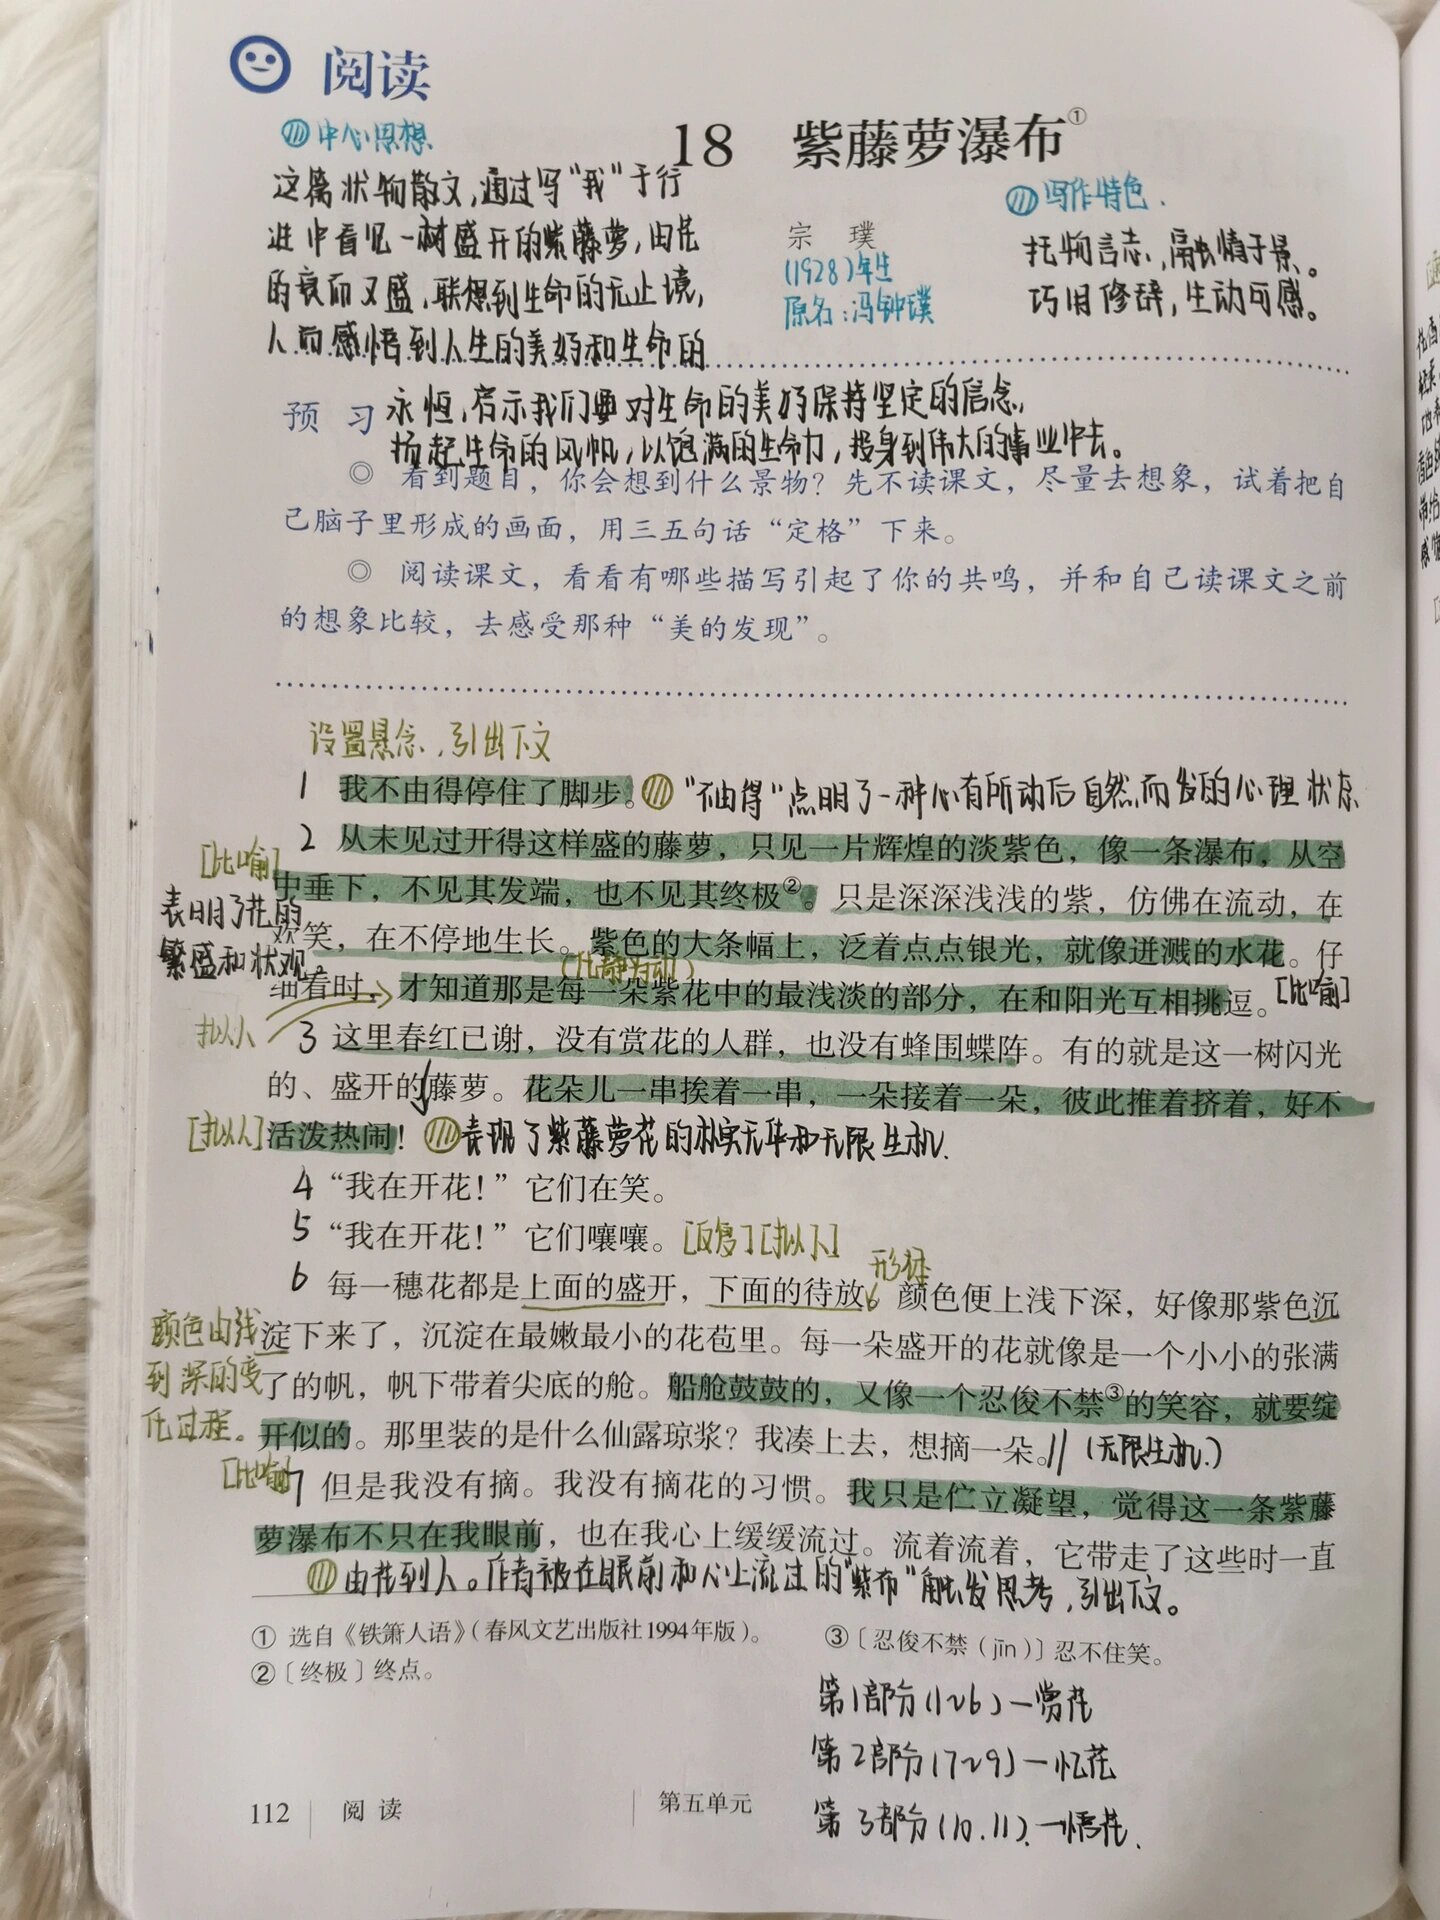 阅读
中心思想
18 紫藤萝瀑布①
这篇状物散文,通过写"我"于行
进中看见一树盛开的紫藤萝,由花
的衰而又盛,联想到生命的无止境,
人而感悟到人生的美好和生命的
永恒,启示我们要对生命的美好保持坚定的信念,
扬起生命的风帆,以饱满的生命力,投身到伟大的事业中去。
宗 璞
(1928)年生
原名:冯钟璞
写作特色.
托物言志,融情于景。
巧用修辞,生动可感。
预 习
◎ 看到题目，你会想到什么景物？先不读课文，尽量去想象，试着把自
己脑子里形成的画面，用三五句话“定格”下来。
◎ 阅读课文，看看有哪些描写引起了你的共鸣，并和自己读课文之前
的想象比较，去感受那种“美的发现”。
设置悬念,引出下文
1 我不由得停住了脚步。"不由得"点明了一种心有所动后自然而发的心理状态
2 从未见过开得这样盛的藤萝，只见一片辉煌的淡紫色，像一条瀑布，从空
[比喻]
中垂下，不见其发端，也不见其终极②。只是深深浅浅的紫，仿佛在流动，在
表明了花的
欢笑，在不停地生长。紫色的大条幅上，泛着点点银光，就像迸溅的水花。仔
繁盛和状观。
(化静为动)
细看时，才知道那是每一朵紫花中的最浅淡的部分，在和阳光互相挑逗。[比喻]
拟人
3 这里春红已谢，没有赏花的人群，也没有蜂围蝶阵。有的就是这一树闪光
的、盛开的藤萝。花朵儿一串挨着一串，一朵接着一朵，彼此推着挤着，好不
[拟人]
活泼热闹！表现了紫藤萝花的朴实无华和无限生机.
4 “我在开花！”它们在笑。
5 “我在开花！”它们嚷嚷。[反复][拟人]
6 每一穗花都是上面的盛开，下面的待放。颜色便上浅下深，好像那紫色沉
颜色由浅
到深的变
化过程。
淀下来了，沉淀在最嫩最小的花苞里。每一朵盛开的花就像是一个小小的张满
了的帆，帆下带着尖底的舱。船舱鼓鼓的，又像一个忍俊不禁③的笑容，就要绽
开似的。那里装的是什么仙露琼浆？我凑上去，想摘一朵。//(无限生机.)
[比喻]
7 但是我没有摘。我没有摘花的习惯。我只是伫立凝望，觉得这一条紫藤
萝瀑布不只在我眼前，也在我心上缓缓流过。流着流着，它带走了这些时一直
由花到人。作者被在眼前和心上流过的"紫布"触发思考,引出下文。
① 选自《铁箫人语》（春风文艺出版社1994年版）。
② 〔终极〕终点。
③〔忍俊不禁（jīn）〕忍不住笑。
第1部分(1~6)—赏花
第2部分(7~9)—忆花
第3部分(10.11).—悟花.
112 阅 读
第五单元